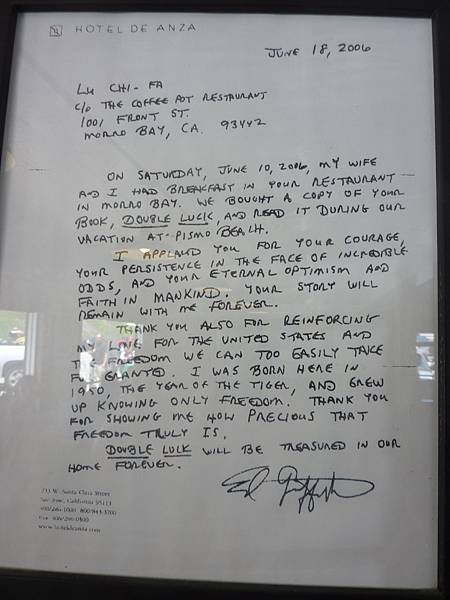 HOTEL DE ANZA
JUNE 18, 2006
LU CHI-FA
C/O THE COFFEE POT RESTAURANT
1001 FRONT ST.
MORRO BAY, CA. 93442
ON SATURDAY, JUNE 10, 2006, MY WIFE
AND I HAD BREAKFAST IN YOUR RESTAURANT
IN MORRO BAY. WE BOUGHT A COPY OF YOUR
BOOK, DOUBLE LUCK, AND READ IT DURING OUR
VACATION AT PISMO BEACH.
I APPLAUD YOU FOR YOUR COURAGE,
YOUR PERSISTENCE IN THE FACE OF INCREDIBLE
ODDS, AND YOUR ETERNAL OPTIMISM AND
FAITH IN MANKIND. YOUR STORY WILL
REMAIN WITH ME FOREVER.
THANK YOU ALSO FOR REINFORCING
MY LOVE FOR THE UNITED STATES AND
THE FREEDOM WE CAN TOO EASILY TAKE
FOR GRANTED. I WAS BORN HERE IN
1950, THE YEAR OF THE TIGER, AND GREW
UP KNOWING ONLY FREEDOM. THANK YOU
FOR SHOWING ME HOW PRECIOUS THAT
FREEDOM TRULY IS.
DOUBLE LUCK WILL BE TREASURED IN OUR
HOME FOREVER.
Ed
233 W. Santa Clara Street
San Jose, California 95113
408/286-1000 800/843-3700
Fax 408/286-0500
www.hoteldeanza.com